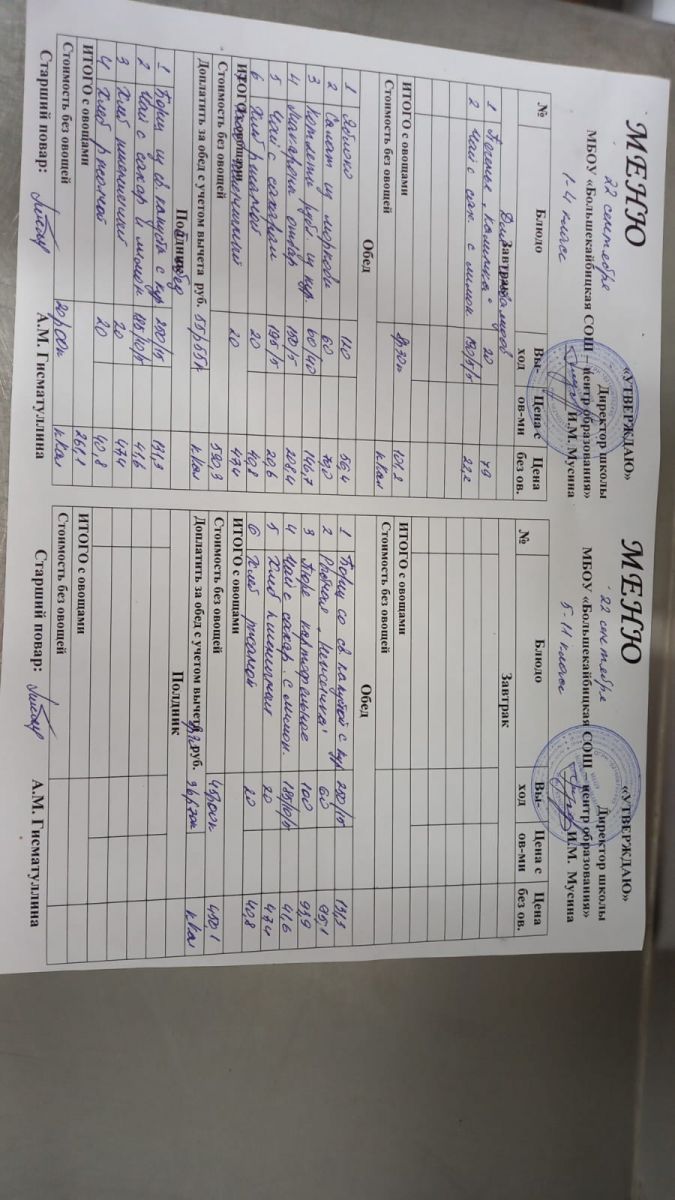 МЕНЮ
22 сентября
«УТВЕРЖДАЮ»
Директор школы
МБОУ «Большекайбицкая СОШ – центр образования»
1-4 класс
И.М. Мусина
№ Блюдо Вы-ход Цена с ов-ми Цена без ов.
Завтрак
1 Печенье 20 79
2 Чай с сах. с лимон 22,2
ИТОГО с овощами 101,2
Стоимость без овощей ккал
Обед
1 Яблоко 110
2 Салат из моркови 60
3 Котлеты руб из кур 60/40 146,7
4 Макароны отвар 150/5 208,4
5 Чай с сахаром 20,6
6 Хлеб ржаной 20 40,8
пшеничный 20 47,4
ИТОГО с овощами
Стоимость без овощей 590,3
Доплатить за обед с учетом вычета руб. 55р55к ккал
Полдник
обед
1 Борщ из св капусты с кур 250/15 131,3
2 Чай с сахар и лимон 41,6
3 Хлеб пшеничный 20 47,4
4 Хлеб ржаной 20 40,8
ИТОГО с овощами 261,1
Стоимость без овощей ккал
Старший повар: А.М. Гисматуллина
МЕНЮ
22 сентября
«УТВЕРЖДАЮ»
Директор школы
МБОУ «Большекайбицкая СОШ – центр образования»
5-11 класс
И.М. Мусина
№ Блюдо Вы-ход Цена с ов-ми Цена без ов.
Завтрак
ИТОГО с овощами
Стоимость без овощей
Обед
1 Борщ со св капустой с кур 250/15 131,3
2 60 95,1
3 Пюре картофельное 100 93,9
4 Чай с сахар. с лимон. 41,6
5 Хлеб пшеничный 20 47,4
6 Хлеб ржаной 20 40,8
ИТОГО с овощами
Стоимость без овощей 450,1
Доплатить за обед с учетом вычета руб. ккал
Полдник
ИТОГО с овощами
Стоимость без овощей
Старший повар: А.М. Гисматуллина